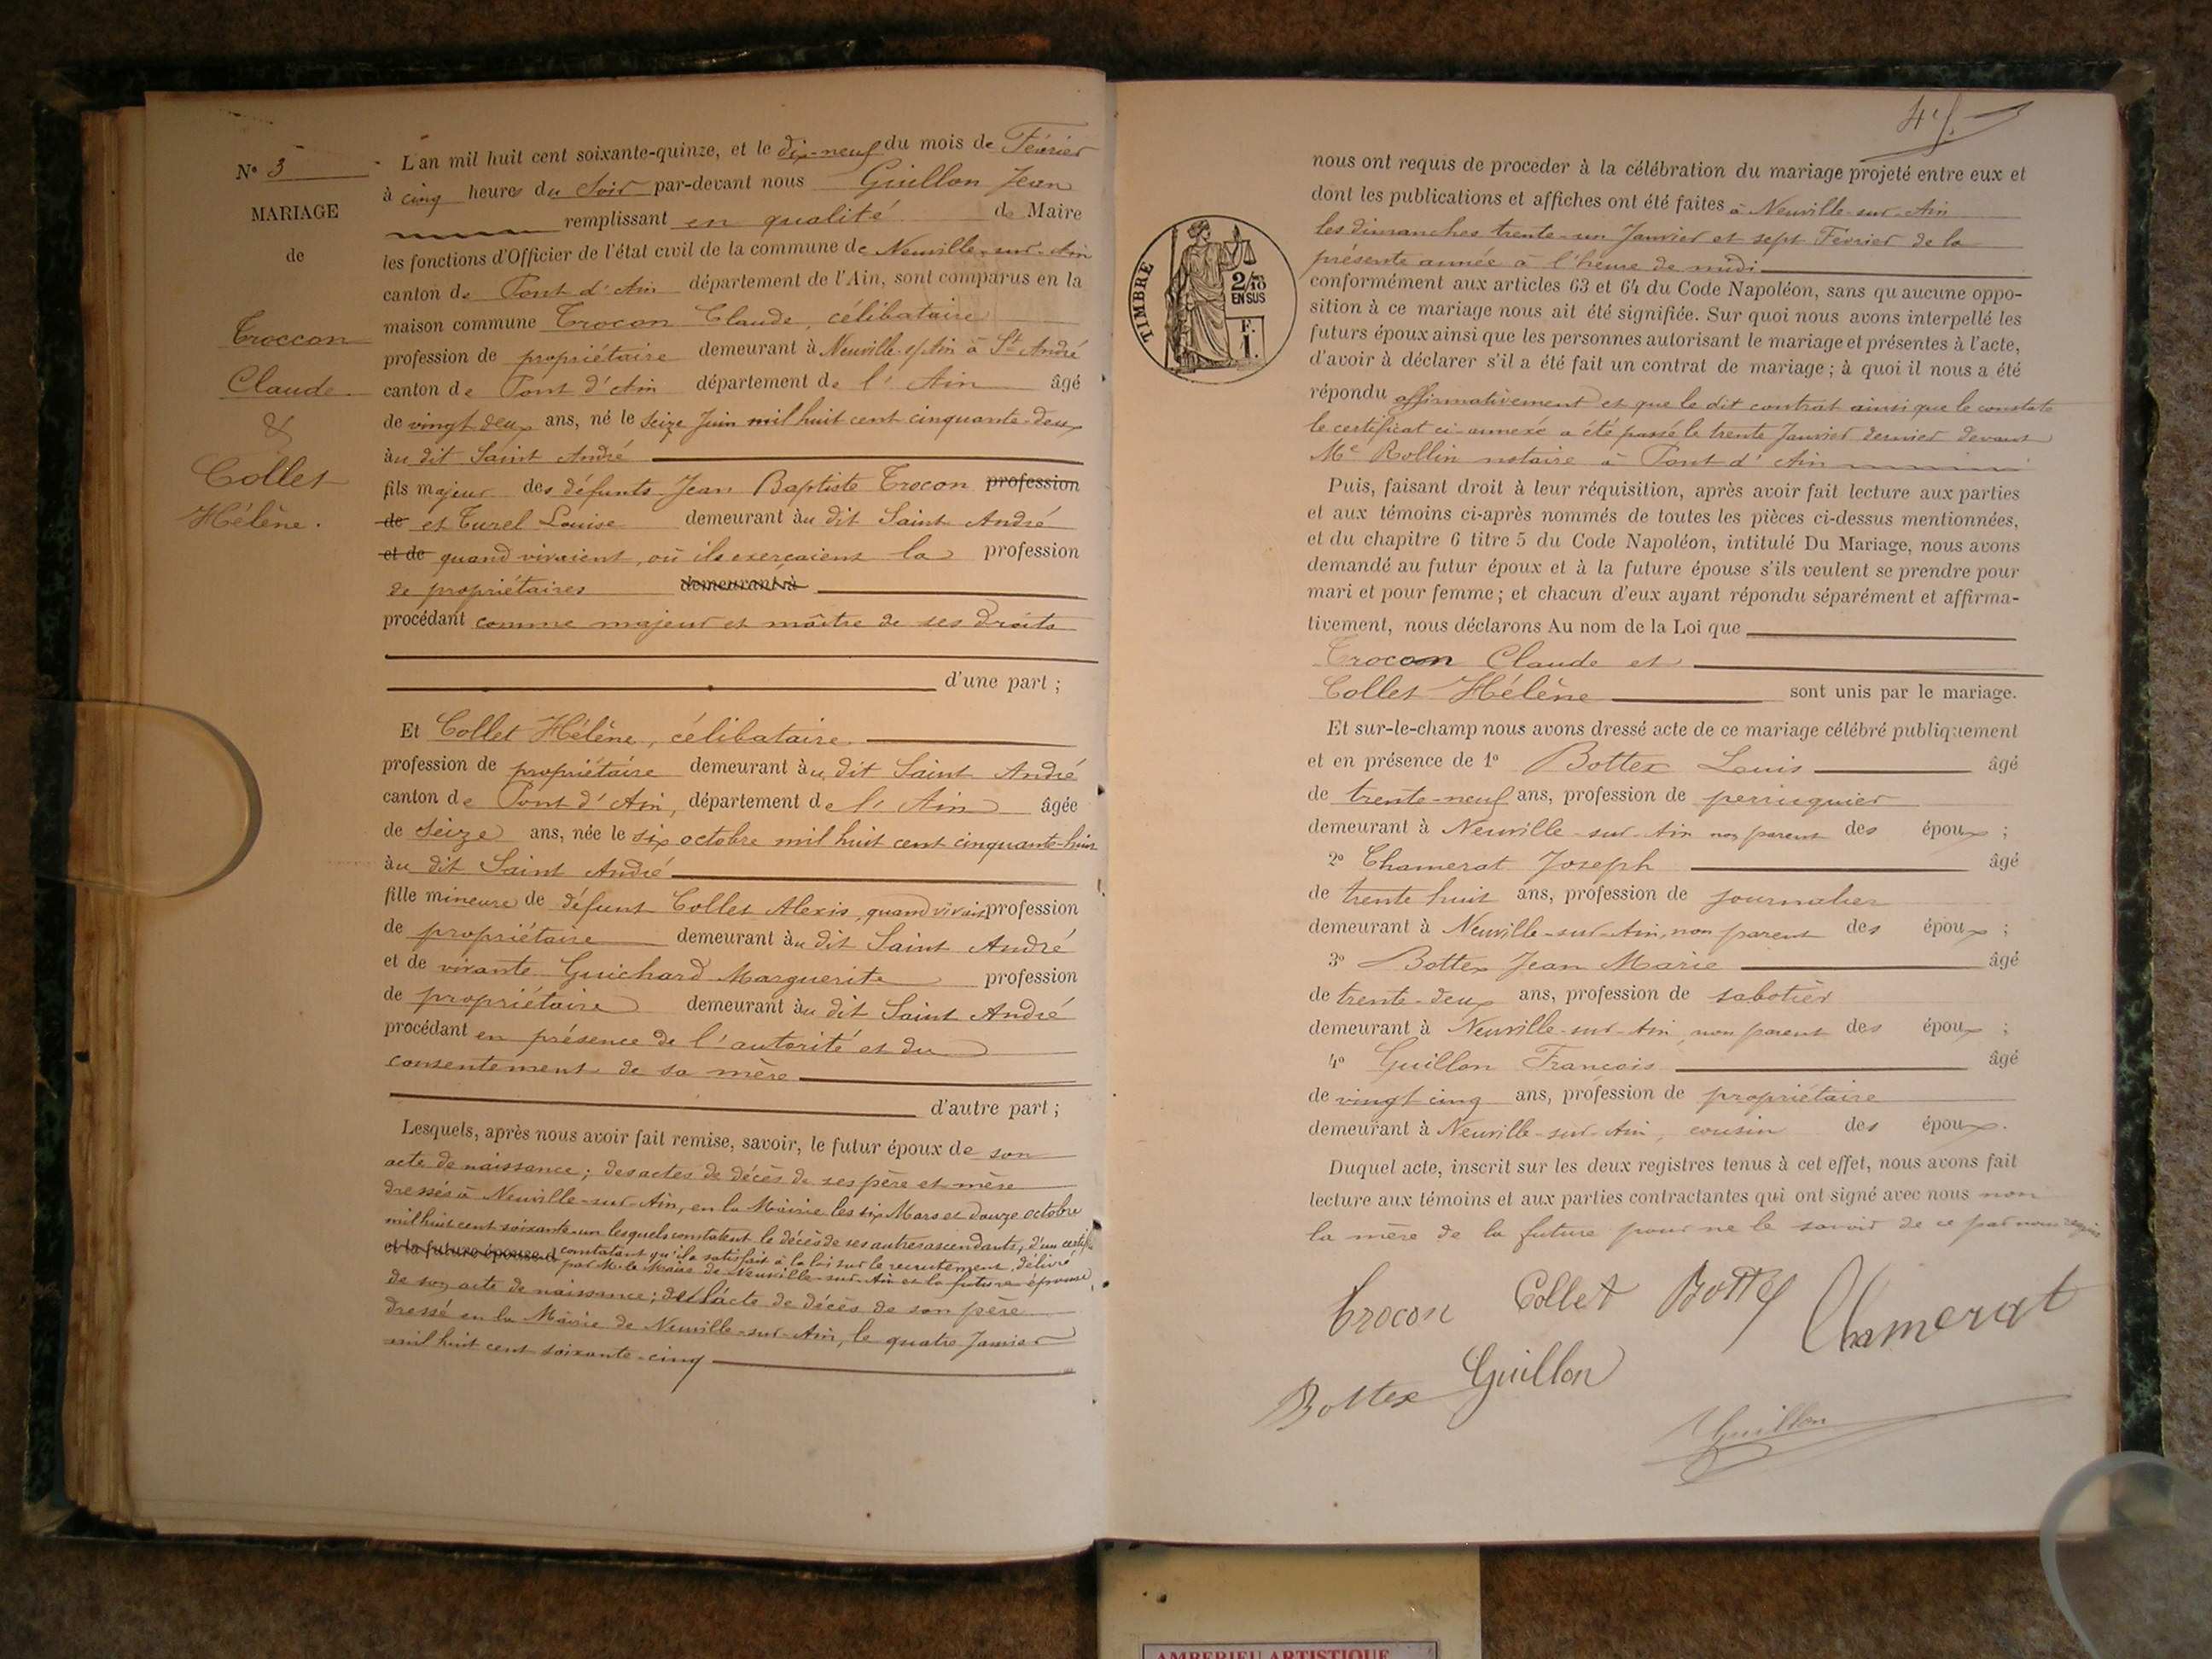 N° 3
MARIAGE
de
Troccon
Claude
&
Collet
Hélène.
L'an mil huit cent soixante-quinze, et le dix-neuf du mois de Février
à cinq heures du Soir par-devant nous Guillon Jean
remplissant en qualité de Maire
les fonctions d'Officier de l'état civil de la commune de Neuville-sur-Ain
canton de Pont d'Ain département de l'Ain, sont comparus en la
maison commune Trocon Claude, célibataire
profession de propriétaire demeurant à Neuville s/Ain à St André
canton de Pont d'Ain département de l'Ain âgé
de vingt deux ans, né le seize Juin mil huit cent cinquante-deux
au dit Saint André
fils majeur des défunts Jean Baptiste Trocon profession
de et Turel Louise demeurant au dit Saint André
et de quand vivaient, où ils exerçaient la profession
de propriétaires demeurant à
procédant comme majeur et maître de ses droits
d'une part ;
Et Collet Hélène, célibataire
profession de propriétaire demeurant au dit Saint André
canton de Pont d'Ain, département de l'Ain âgée
de seize ans, née le six octobre mil huit cent cinquante-huit
au dit Saint André
fille mineure de défunt Collet Alexis, quand vivait profession
de propriétaire demeurant au dit Saint André
et de vivante Guichard Marguerite profession
de propriétaire demeurant au dit Saint André
procédant en présence de l'autorité et du
consentement de sa mère
d'autre part ;
Lesquels, après nous avoir fait remise, savoir, le futur époux de son
acte de naissance; des actes de décès de ses père et mère
dressés à Neuville-sur-Ain, en la Mairie les six Mars et douze octobre
mil huit cent soixante-un lesquels constatent le décès de ses autres ascendants; d'un certif.
et la future épouse d constatant qu'il a satisfait à la loi sur le recrutement, délivré
par M. le Maire de Neuville-sur-Ain et la future épouse
de son acte de naissance; de l'acte de décès de son père
dressé en la Mairie de Neuville-sur-Ain, le quatre Janvier
mil huit cent soixante-cinq
45
nous ont requis de procéder à la célébration du mariage projeté entre eux et
dont les publications et affiches ont été faites à Neuville-sur-Ain
les dimanches trente-un Janvier et sept Février de la
présente année à l'heure de midi
TIMBRE
2/10
EN SUS
F.
1.
conformément aux articles 63 et 64 du Code Napoléon, sans qu'aucune oppo-
sition à ce mariage nous ait été signifiée. Sur quoi nous avons interpellé les
futurs époux ainsi que les personnes autorisant le mariage et présentes à l'acte,
d'avoir à déclarer s'il a été fait un contrat de mariage ; à quoi il nous a été
répondu affirmativement et que le dit contrat ainsi que le constate
le certificat ci-annexé a été passé le trente Janvier dernier devant
Me Rollin notaire à Pont d'Ain
Puis, faisant droit à leur réquisition, après avoir fait lecture aux parties
et aux témoins ci-après nommés de toutes les pièces ci-dessus mentionnées,
et du chapitre 6 titre 5 du Code Napoléon, intitulé Du Mariage, nous avons
demandé au futur époux et à la future épouse s'ils veulent se prendre pour
mari et pour femme ; et chacun d'eux ayant répondu séparément et affirma-
tivement, nous déclarons Au nom de la Loi que
Trocon Claude et
Collet Hélène sont unis par le mariage.
Et sur-le-champ nous avons dressé acte de ce mariage célébré publiquement
et en présence de 1° Bottex Louis âgé
de trente-neuf ans, profession de perruquier
demeurant à Neuville-sur-Ain non parent des époux ;
2° Chamerat Joseph âgé
de trente huit ans, profession de journalier
demeurant à Neuville-sur-Ain, non parent des époux ;
3° Bottex Jean Marie âgé
de trente-deux ans, profession de sabotier
demeurant à Neuville-sur-Ain, non parent des époux ;
4° Guillon François âgé
de vingt cinq ans, profession de propriétaire
demeurant à Neuville-sur-Ain, cousin des époux.
Duquel acte, inscrit sur les deux registres tenus à cet effet, nous avons fait
lecture aux témoins et aux parties contractantes qui ont signé avec nous non
la mère de la future pour ne le savoir de ce par nous requis
Trocon Collet Bottex Chamerat
Bottex Guillon
Guillon
AMBERIEU ARTISTIQUE